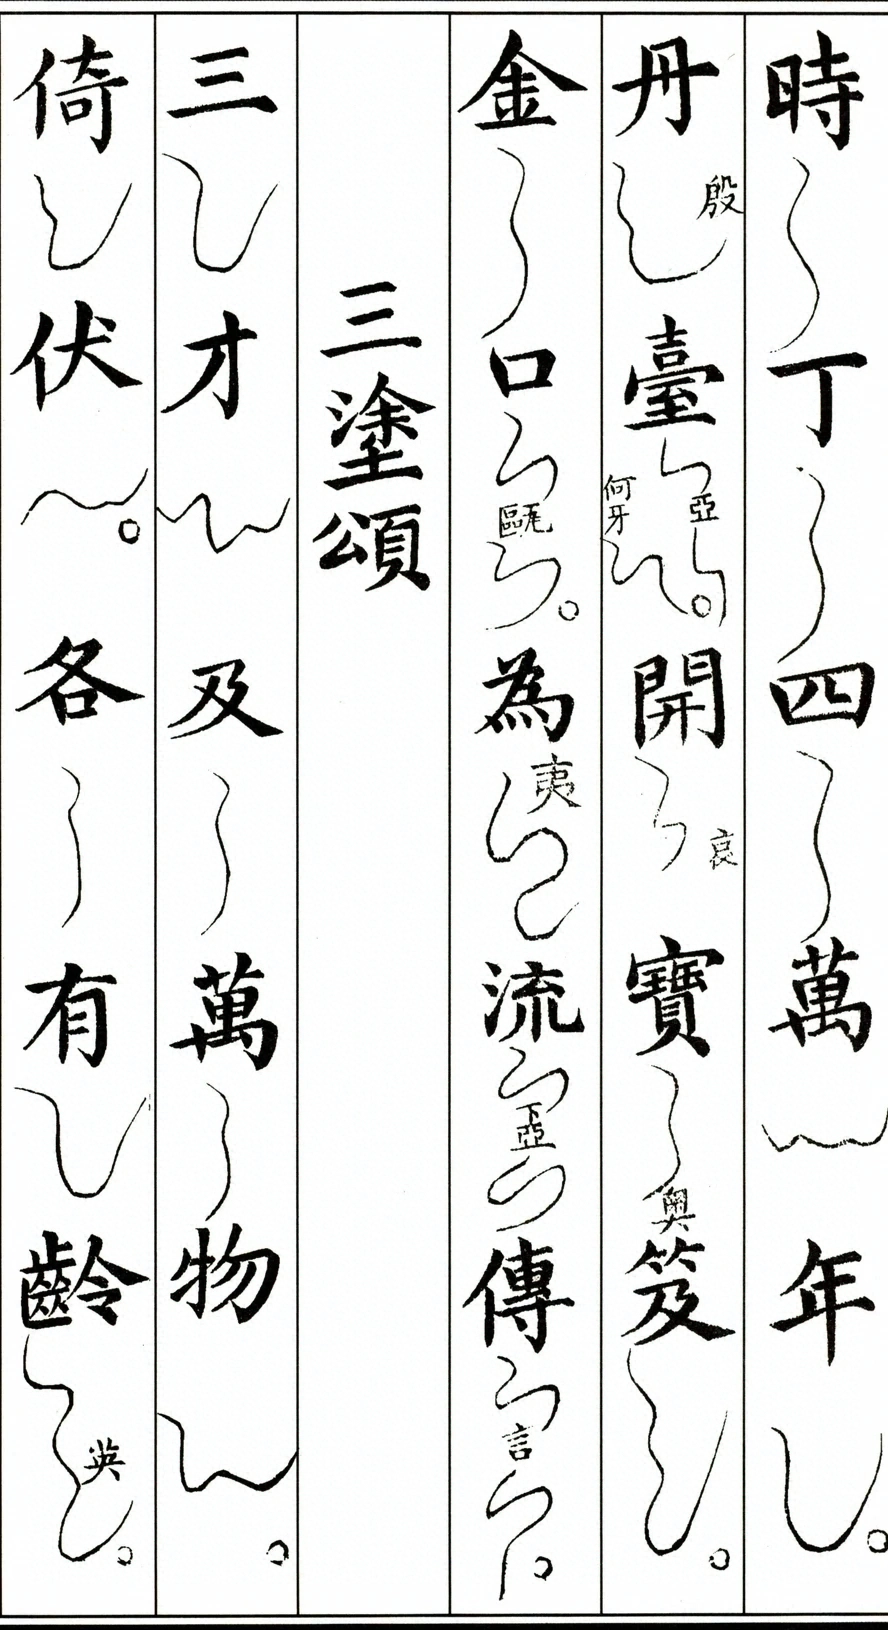 時丁四萬年。
丹殷臺亞何牙。開哀寶奥笈。
金口區毛。為夷流下亞傳言。
三塗頌
三才及萬物。
倚伏。各有齡英。